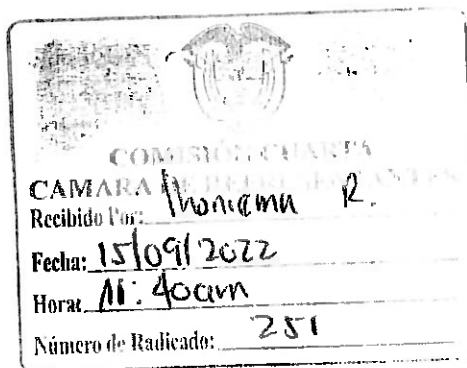 COMISIÓN CUARTA
CAMARA DE REPRESENTANTES
Recibido Por: R.
Fecha: 15/09/2022
Hora: 11:40am
Número de Radicado: 251